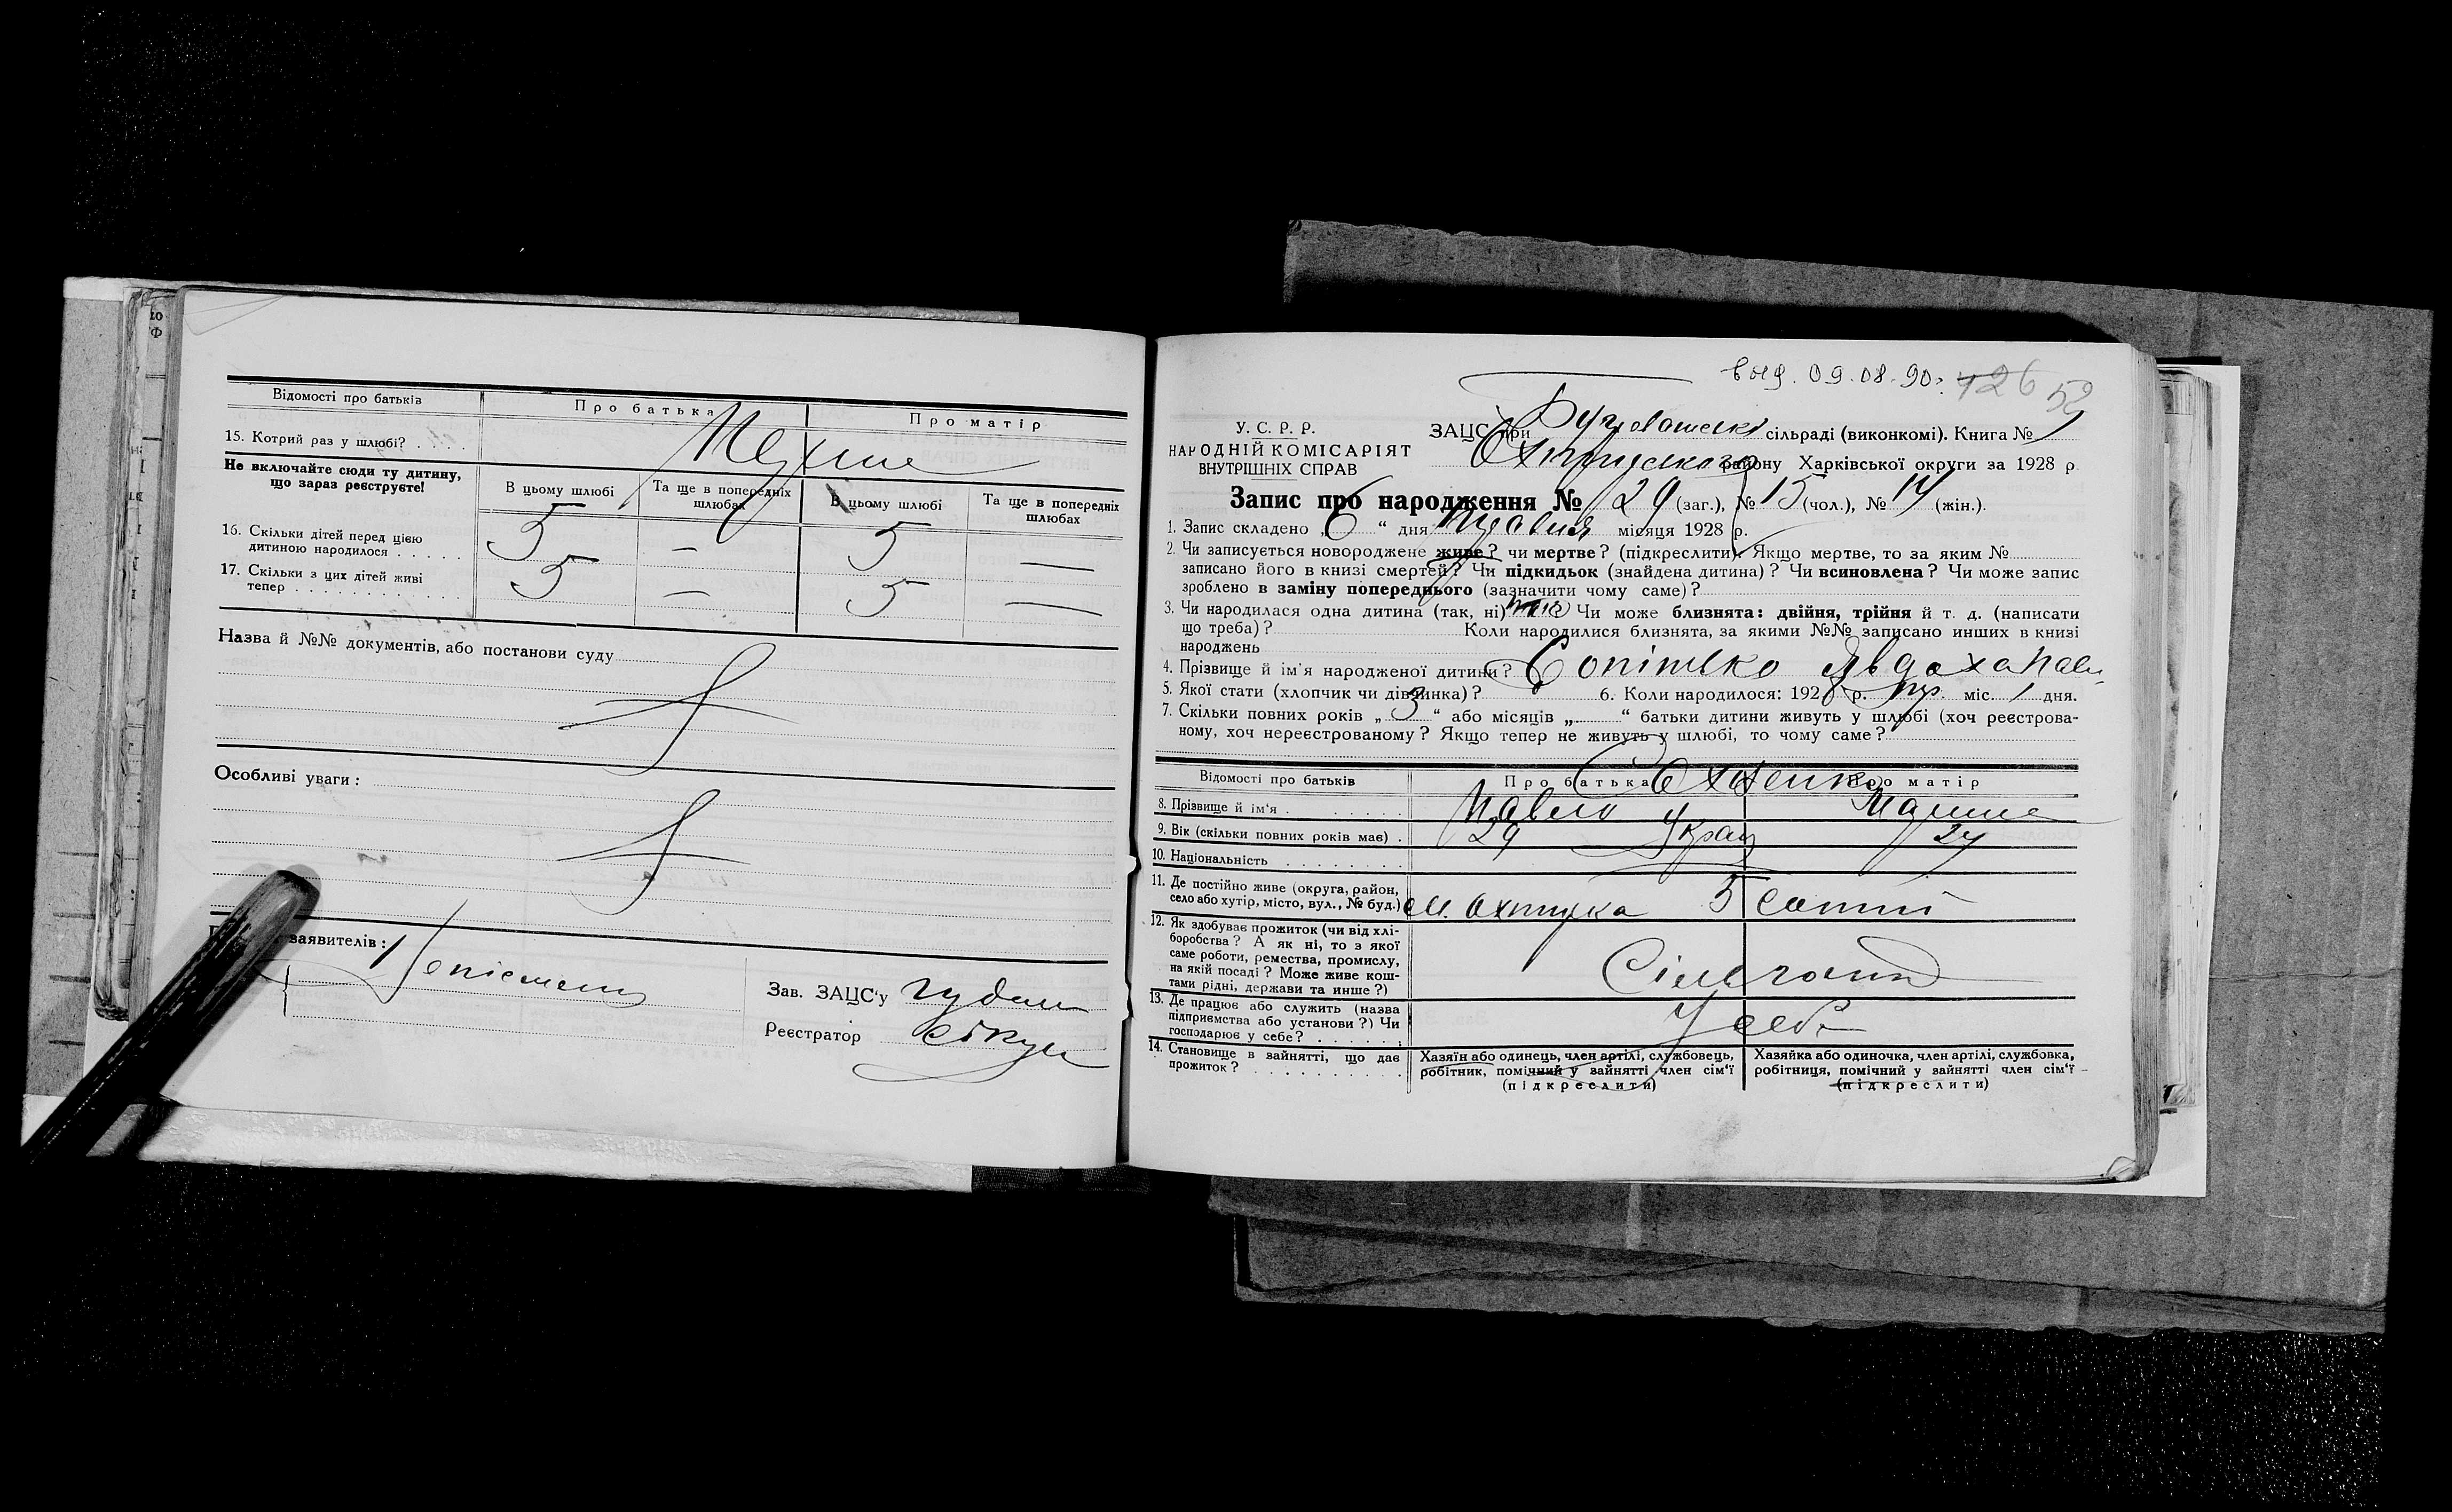 Відомості про батьків
Про батька
Про матір
15. Котрий раз у шлюбі? . . . .
Не включайте сюди ту дитину,
що зараз реєструєте!
В цьому шлюбі
Та ще в попередніх
шлюбах
В цьому шлюбі
Та ще в попередніх
шлюбах
16. Скільки дітей перед цією
дитиною народилося . . . . .
5 — 5 —
17. Скільки з цих дітей живі
тепер . . . . . . . . . . . .
5 — 5 —
Назва й №№ документів, або постанови суду
Особливі уваги:
заявителів:
Зав. ЗАЦС'у
Реєстратор
вид. 09.08.90.
126 52
У. С. Р. Р.
НАРОДНІЙ КОМІСАРІЯТ
ВНУТРІШНІХ СПРАВ
ЗАЦС при сільраді (виконкомі). Книга № 1
Охтирського району Харківської округи за 1928 р.
Запис про народження № 29 (заг.), № 15 (чол.), № 14 (жін.).
1. Запис складено „ 6 “ дня травня місяця 1928 р.
2. Чи записується новороджене живе? чи мертве? (підкреслити). Якщо мертве, то за яким №
записано його в книзі смертей? Чи підкидьок (знайдена дитина)? Чи всиновлена? Чи може запис
зроблено в заміну попереднього (зазначити чому саме)?
3. Чи народилася одна дитина (так, ні) так Чи може близнята: двійня, трійня й т. д. (написати
що треба)? Коли народилися близнята, за якими №№ записано инших в книзі
народжень
4. Прізвище й ім'я народженої дитини? Явдоха Павл.
5. Якої стати (хлопчик чи дівчинка)? 6. Коли народилося: 1928 р. тр. міс. 1 дня.
7. Скільки повних років „ 3 “ або місяців „ “ батьки дитини живуть у шлюбі (хоч реєстрова-
ному, хоч нереєстрованому? Якщо тепер не живуть у шлюбі, то чому саме?
Відомості про батьків
Про батька
Про матір
8. Прізвище й ім'я . . . . . . .
Павло
9. Вік (скільки повних років має) .
29 27
10. Національність . . . . . . . .
Україн
11. Де постійно живе (округа, район,
село або хутір, місто, вул., № буд.)
м. Охтирка 5 сотні
12. Як здобуває прожиток (чи від хлі-
боробства? А як ні, то з якої
саме роботи, ремества, промислу,
на якій посаді? Може живе кош-
тами рідні, держави та инше?)
13. Де працює або служить (назва
підприємства або установи?) Чи
господарює у себе? . . . . . .
У себе
14. Становище в зайнятті, що дає
прожиток? . . . . . . . . . .
Хазяїн або одинець, член артілі, службовець,
робітник, помічний у зайнятті член сім'ї
(підкреслити)
Хазяйка або одиночка, член артілі, службовка,
робітниця, помічний у зайнятті член сім'ї
(підкреслити)